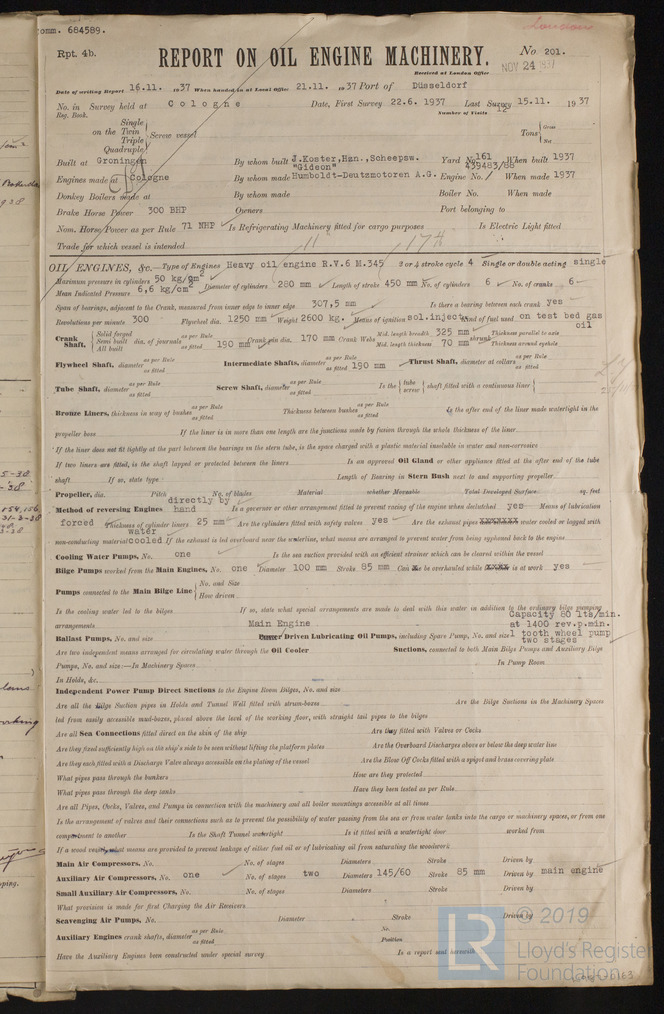 comm. 684589.
London
Rpt. 4b.
REPORT ON OIL ENGINE MACHINERY.
No 201.
Received at London Office
NOV 24 1937
Date of writing Report 16.11. 1937 When handed in at Local Office 21.11. 1937 Port of Düsseldorf
No. in Survey held at Cologne Date, First Survey 22.6. 1937 Last Survey 15.11. 1937
Reg. Book. Number of Visits 12
Single
on the Twin Screw vessel
Triple
Quadruple
Tons Gross
Net
Built at Groningen By whom built J.Koster,Hzn.,Scheepsw. "Gideon" Yard No. 161 When built 1937
Engines made at Cologne By whom made Humboldt-Deutzmotoren A.G. Engine No. 439483/88 When made 1937
Donkey Boilers made at By whom made Boiler No. When made
Brake Horse Power 300 BHP Owners Port belonging to
Nom. Horse Power as per Rule 71 NHP Is Refrigerating Machinery fitted for cargo purposes Is Electric Light fitted
Trade for which vessel is intended
OIL ENGINES, &c. Type of Engines Heavy oil engine R.V.6 M.345 2 or 4 stroke cycle 4 Single or double acting single
Maximum pressure in cylinders 50 kg/cm2 Diameter of cylinders 280 mm Length of stroke 450 mm No. of cylinders 6 No. of cranks 6
Mean Indicated Pressure 6,6 kg/cm2
Span of bearings, adjacent to the Crank, measured from inner edge to inner edge 307,5 mm Is there a bearing between each crank yes
Revolutions per minute 300 Flywheel dia. 1250 mm Weight 2600 kg. Means of ignition sol.inject. Kind of fuel used on test bed gas oil
Crank Shaft, Solid forged Semi built All built dia. of journals as per Rule as fitted 190 mm Crank pin dia. 170 mm Crank Webs Mid. length breadth 325 mm Mid. length thickness 70 mm shrunk Thickness parallel to axis Thickness around eyehole
Flywheel Shaft, diameter as per Rule as fitted Intermediate Shafts, diameter as per Rule as fitted 190 mm Thrust Shaft, diameter at collars as per Rule as fitted
Tube Shaft, diameter as per Rule as fitted Screw Shaft, diameter as per Rule as fitted Is the tube screw shaft fitted with a continuous liner
Bronze Liners, thickness in way of bushes as per Rule as fitted Thickness between bushes as per Rule as fitted Is the after end of the liner made watertight in the
propeller boss If the liner is in more than one length are the junctions made by fusion through the whole thickness of the liner
If the liner does not fit tightly at the part between the bearings in the stern tube, is the space charged with a plastic material insoluble in water and non-corrosive
If two liners are fitted, is the shaft lapped or protected between the liners Is an approved Oil Gland or other appliance fitted at the after end of the tube
shaft If so, state type Length of Bearing in Stern Bush next to and supporting propeller
Propeller, dia. Pitch No. of blades Material whether Moveable Total Developed Surface sq. feet
Method of reversing Engines directly by hand Is a governor or other arrangement fitted to prevent racing of the engine when declutched yes Means of lubrication
forced Thickness of cylinder liners 25 mm Are the cylinders fitted with safety valves yes Are the exhaust pipes water cooled or lagged with
non-conducting material water cooled If the exhaust is led overboard near the waterline, what means are arranged to prevent water from being syphoned back to the engine
Cooling Water Pumps, No. one Is the sea suction provided with an efficient strainer which can be cleared within the vessel
Bilge Pumps worked from the Main Engines, No. one Diameter 100 mm Stroke 85 mm Can be overhauled while is at work yes
Pumps connected to the Main Bilge Line No. and Size
How driven
Is the cooling water led to the bilges If so, state what special arrangements are made to deal with this water in addition to the ordinary bilge pumping
arrangements
Ballast Pumps, No. and size Main Engine Driven Lubricating Oil Pumps, including Spare Pump, No. and size Capacity 80 lts/min. at 1400 rev.p.min. 1 tooth wheel pump two stages
Are two independent means arranged for circulating water through the Oil Cooler Suctions, connected to both Main Bilge Pumps and Auxiliary Bilge
Pumps, No. and size:—In Machinery Spaces In Pump Room
In Holds, &c.
Independent Power Pump Direct Suctions to the Engine Room Bilges, No. and size
Are all the Bilge Suction pipes in Holds and Tunnel Well fitted with strum-boxes Are the Bilge Suctions in the Machinery Spaces
led from easily accessible mud-boxes, placed above the level of the working floor, with straight tail pipes to the bilges
Are all Sea Connections fitted direct on the skin of the ship Are they fitted with Valves or Cocks
Are they fixed sufficiently high on the ship's side to be seen without lifting the platform plates Are the Overboard Discharges above or below the deep water line
Are they each fitted with a Discharge Valve always accessible on the plating of the vessel Are the Blow Off Cocks fitted with a spigot and brass covering plate
What pipes pass through the bunkers How are they protected
What pipes pass through the deep tanks Have they been tested as per Rule
Are all Pipes, Cocks, Valves, and Pumps in connection with the machinery and all boiler mountings accessible at all times
Is the arrangement of valves and their connections such as to prevent the possibility of water passing from the sea or from water tanks into the cargo or machinery spaces, or from one
compartment to another Is the Shaft Tunnel watertight Is it fitted with a watertight door worked from
If a wood vessel, what means are provided to prevent leakage of either fuel oil or of lubricating oil from saturating the woodwork
Main Air Compressors, No. No. of stages Diameters Stroke Driven by
Auxiliary Air Compressors, No. one No. of stages two Diameters 145/60 Stroke 85 mm Driven by main engine
Small Auxiliary Air Compressors, No. No. of stages Diameters Stroke Driven by
What provision is made for first Charging the Air Receivers
Scavenging Air Pumps, No. Diameter Stroke Driven by
Auxiliary Engines crank shafts, diameter as per Rule as fitted No. Position
Have the Auxiliary Engines been constructed under special survey Is a report sent herewith
LR © 2019
Lloyd's Register
Foundation